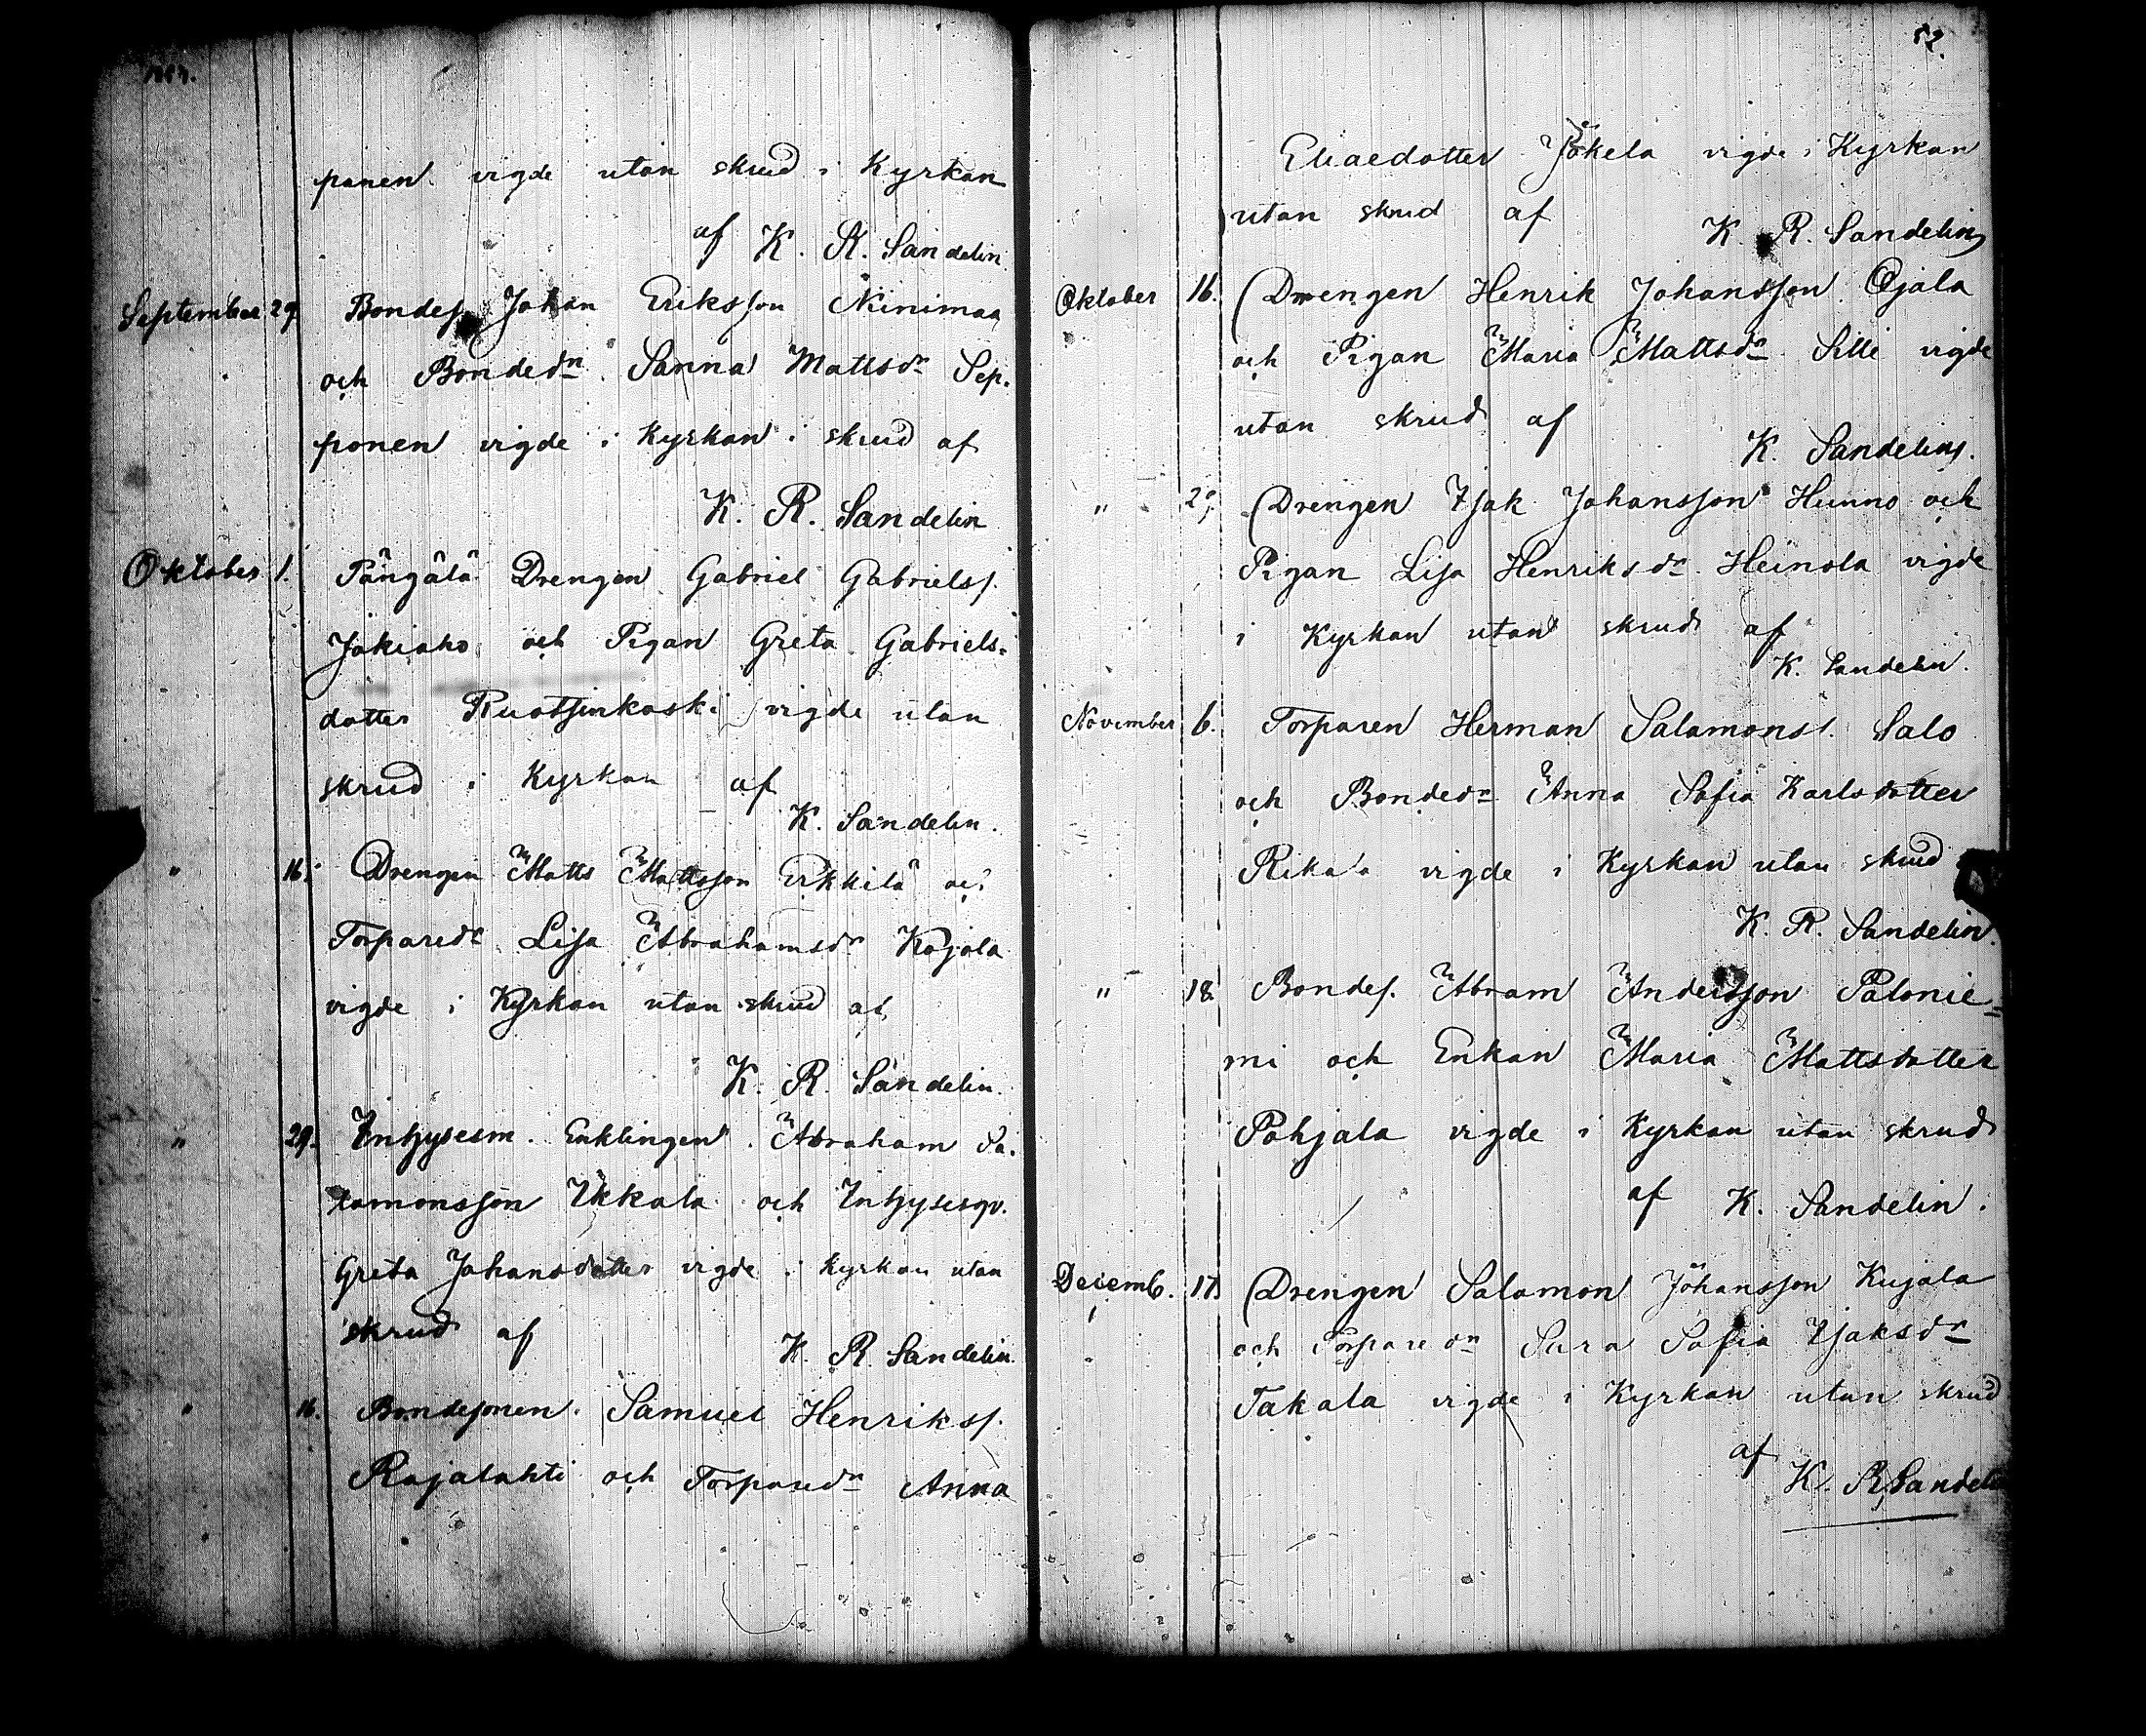 panen vigde utan skrud i Kyrkan
af K. R. Sandelin.
September 29 Bondes. Johan Eriksson Ninimaa
och Bondedn Sanna Mattsdr Sep-
ponen vigde i Kyrkan i skrud af
K. R. Sandelin
Oktober 1. Pångålä Drengen Gabriel Gabrielss.
Jokiaho och Pigan Greta Gabriels-
dotter Ruotsinkoski vigde utan
skrud i Kyrkan af
K. Sandelin.
" 16. Drengen Matts Mattsson Erkkilä och
Torparedr Lisa Abrahamsdr Kojola
vigde i Kyrkan utan skrud af
K. R. Sandelin.
" 29. Inhysesm. Enklingen Abraham Sa-
lamonsson Ukkola och Inhysesqv.
Greta Johansdotter vigde i Kyrkan utan
skrud af
K. R. Sandelin.
" 16. Bondesonen Samuel Henrikss.
Rajalahti och Torparedn Anna
52.
Eliaedotter Jokela vigde i Kyrkan
utan skrud af
K. R. Sandelin
Oktober 16. Drengen Henrik Johansson Ojala
och Pigan Maria Mattsdr Sille vigde
utan skrud af
K. Sandelin.
" Drengen Isak Johansson Hunno och
Pigan Lisa Henriksdr Heinola vigde
i Kyrkan utan skrud af
K. Sandelin.
November 6. Torparen Herman Salamons. Salo
och Bondedr Anna Sofia Karlsdotter
Rikala vigde i Kyrkan utan skrud
K. R. Sandelin.
" 18 Bondes. Abram Andersson Palonie-
mi och Enkan Maria Mattsdotter
Pohjala vigde i Kyrkan utan skrud
af K. Sandelin.
Decemb. 17 Drengen Salomon Johansson Kujala
och Torparedn Sara Sofia Isaksdr
Takala vigde i Kyrkan utan skrud
af
K. R. Sandelin